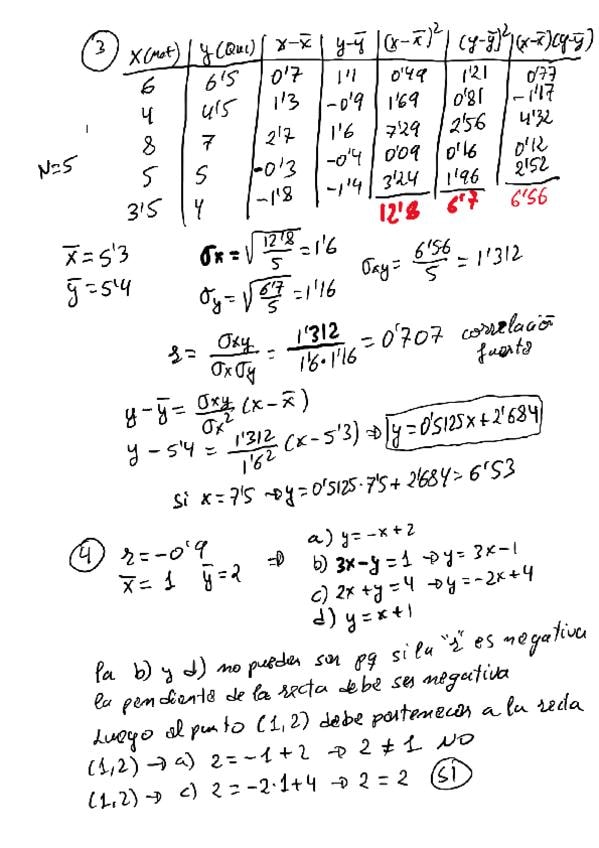 3 x(Mat) y(Qui) x-x̄ y-ȳ (x-x̄)² (y-ȳ)² (x-x̄)(y-ȳ)
6 6'5 0'7 1'1 0'49 1'21 0'77
4 4'5 1'3 -0'9 1'69 0'81 -1'17
8 7 2'7 1'6 7'29 2'56 4'32
N=5 5 5 -0'3 -0'4 0'09 0'16 0'12
3'5 4 -1'8 -1'4 3'24 1'96 2'52
12'8 6'7 6'56
x̄ = 5'3 σx = √(12'8/5) = 1'6 σxy = 6'56/5 = 1'312
ȳ = 5'4 σy = √(6'7/5) = 1'16
r = σxy/(σx σy) = 1'312/(1'6·1'16) = 0'707 correlación fuerte
y-ȳ = σxy/σx² (x-x̄)
y-5'4 = 1'312/1'6² (x-5'3) ⇒ y=0'5125x+2'684
si x=7'5 → y=0'5125·7'5+2'684= 6'53
4 r=-0'9 ⇒ a) y=-x+2
x̄=1 ȳ=2 b) 3x-y=1 → y=3x-1
c) 2x+y=4 → y=-2x+4
d) y=x+1
la b) y d) no pueden ser pq si la "r" es negativa
la pendiente de la recta debe ser negativa
Luego el punto (1,2) debe pertenecer a la recta
(1,2) → a) 2=-1+2 → 2≠1 NO
(1,2) → c) 2=-2·1+4 → 2=2 SI